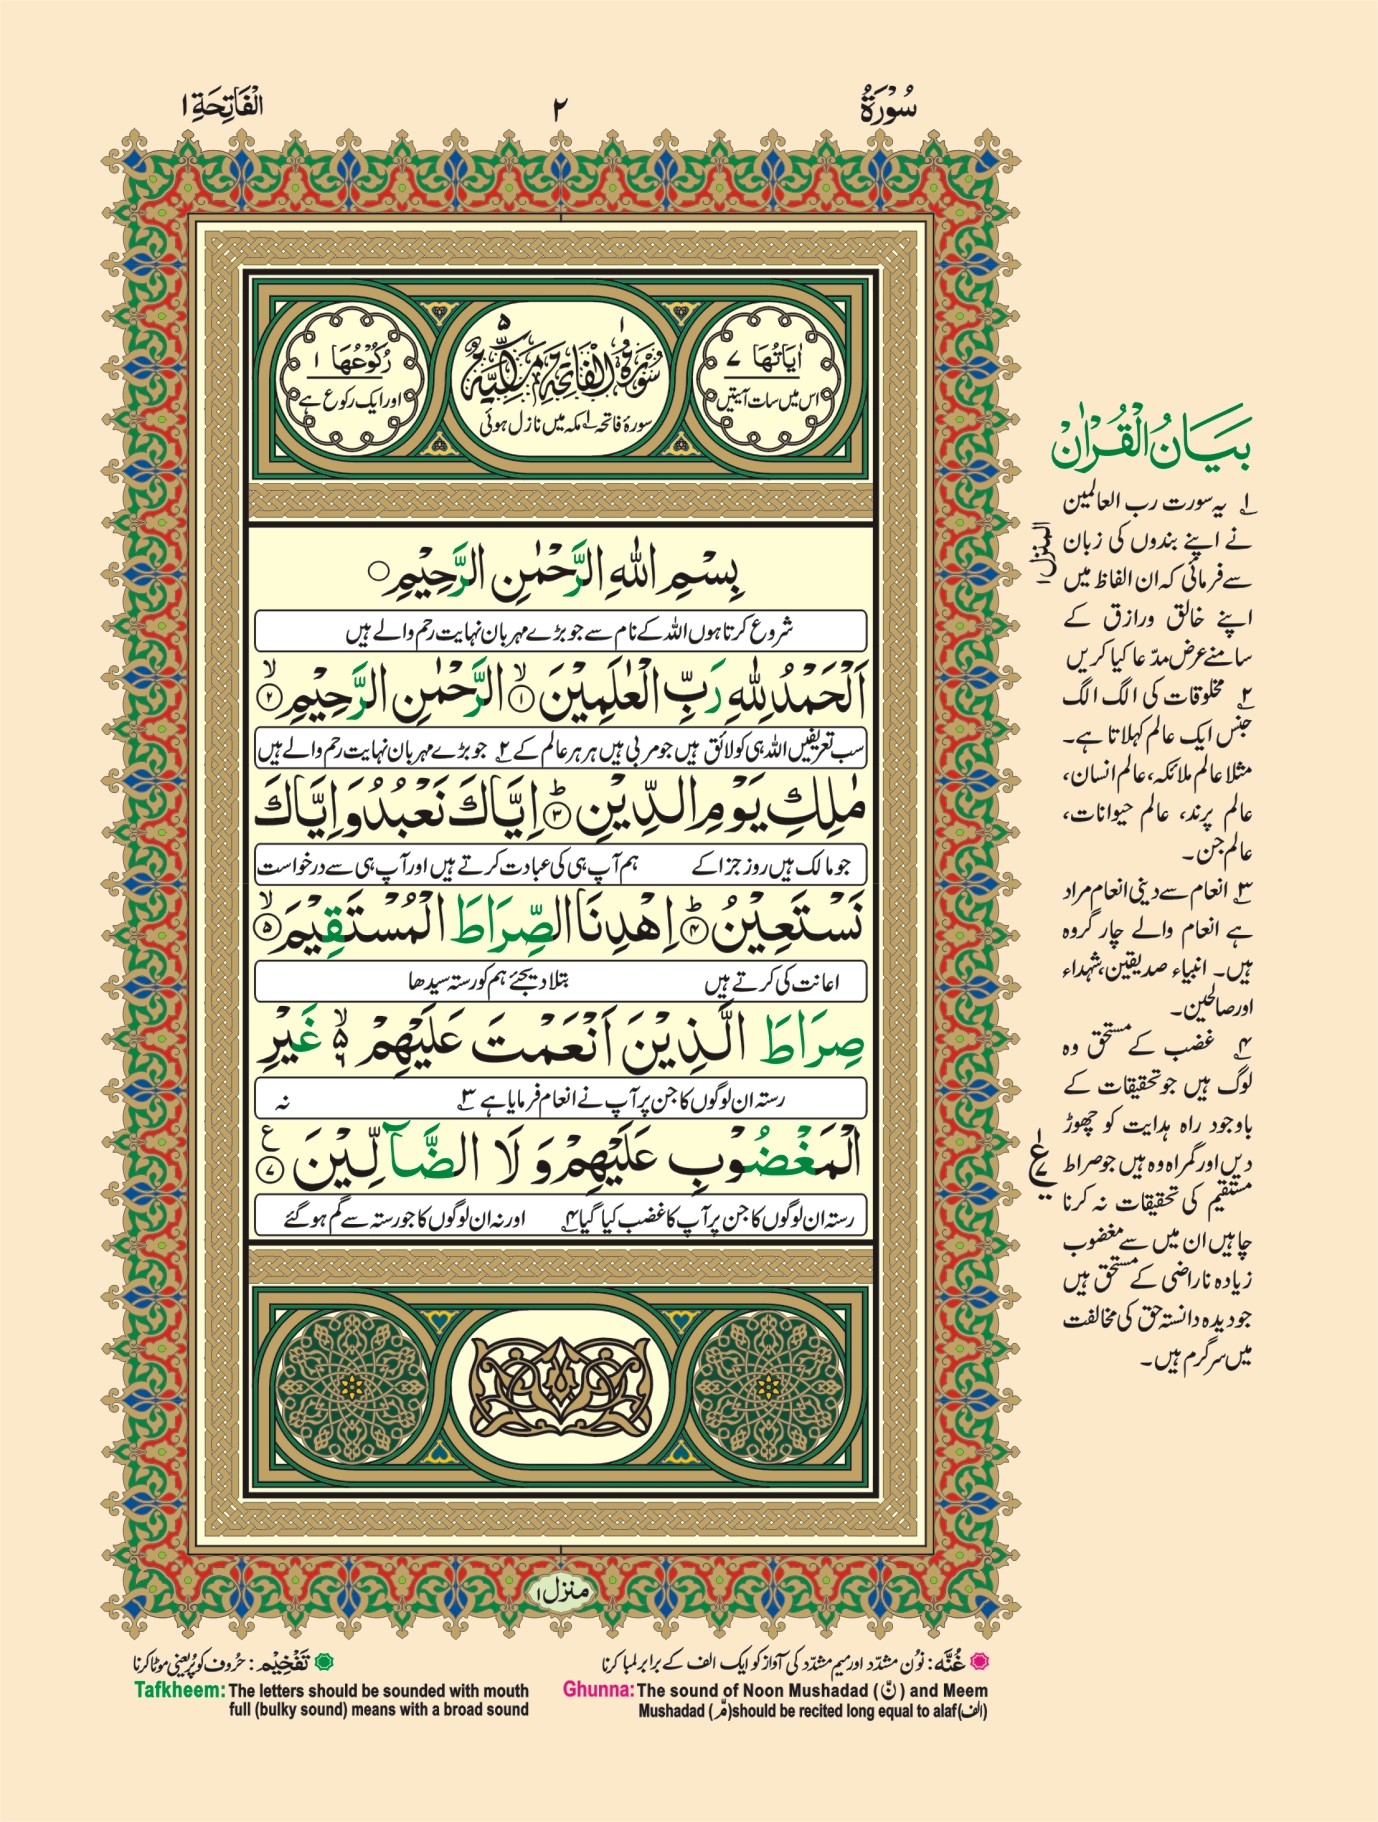 سُوْرَةُ ٢ الْفَاتِحَةِ ١
اٰيَاتُهَا ٧
اس میں سات آیتیں
١ ٥
سُوْرَةُ الْفَاتِحَةِ مَكِّيَّةٌ
سورۂ فاتحہ ١ مکہ میں نازل ہوئی
رُكُوْعُهَا ١
اور ایک رکوع ہے
بِسْمِ اللّٰهِ الرَّحْمٰنِ الرَّحِيْمِ ○
شروع کرتا ہوں اللہ کے نام سے جو بڑے مہربان نہایت رحم والے ہیں
اَلْحَمْدُ لِلّٰهِ رَبِّ الْعٰلَمِيْنَ ۙ﴿١﴾ الرَّحْمٰنِ الرَّحِيْمِ ۙ﴿٢﴾
سب تعریفیں اللہ ہی کو لائق ہیں جو مربی ہیں ہر ہر عالم کے ٢ جو بڑے مہربان نہایت رحم والے ہیں
مٰلِكِ يَوْمِ الدِّيْنِ ؕ﴿٣﴾ اِيَّاكَ نَعْبُدُ وَ اِيَّاكَ
جو مالک ہیں روز جزا کے ہم آپ ہی کی عبادت کرتے ہیں اور آپ ہی سے درخواست
نَسْتَعِيْنُ ؕ﴿٤﴾ اِهْدِنَا الصِّرَاطَ الْمُسْتَقِيْمَ ۙ﴿٥﴾
اعانت کی کرتے ہیں بتلا دیجئے ہم کو رستہ سیدھا
صِرَاطَ الَّذِيْنَ اَنْعَمْتَ عَلَيْهِمْ ۙ۬ۦ غَيْرِ
رستہ ان لوگوں کا جن پر آپ نے انعام فرمایا ہے ٣ نہ
الْمَغْضُوْبِ عَلَيْهِمْ وَ لَا الضَّآلِّيْنَ ﴿٧﴾ ع
رستہ ان لوگوں کا جن پر آپ کا غضب کیا گیا ٤ اور نہ ان لوگوں کا جو رستہ سے گم ہو گئے
منزل ١
المنزل ١
بَيَانُ الْقُرْاٰنْ
١ یہ سورت رب العالمین
نے اپنے بندوں کی زبان
سے فرمائی کہ ان الفاظ میں
اپنے خالق ورازق کے
سامنے عرض مدّعا کیا کریں
٢ مخلوقات کی الگ الگ
جنس ایک عالم کہلاتا ہے۔
مثلا عالم ملائکہ، عالم انسان،
عالم پرند، عالم حیوانات،
عالم جن۔
٣ انعام سے دینی انعام مراد
ہے انعام والے چار گروہ
ہیں۔ انبیاء صدیقین، شہداء
اور صالحین۔
٤ غضب کے مستحق وہ
لوگ ہیں جو تحقیقات کے
باوجود راہ ہدایت کو چھوڑ
دیں اور گمراہ وہ ہیں جو صراط
مستقیم کی تحقیقات نہ کرنا
چاہیں ان میں سے مغضوب
زیادہ ناراضی کے مستحق ہیں
جو دیدہ دانستہ حق کی مخالفت
میں سرگرم ہیں۔
غُنَّه: نوُن مشدّد اور میم مشدّد کی آواز کو ایک الف کے برابر لمبا کرنا
Ghunna: The sound of Noon Mushadad (نّ) and Meem
Mushadad (مّ)should be recited long equal to alaf(الف)
تَفْخِيْم: حُروف کو پُر یعنی موٹا کرنا
Tafkheem: The letters should be sounded with mouth
full (bulky sound) means with a broad sound